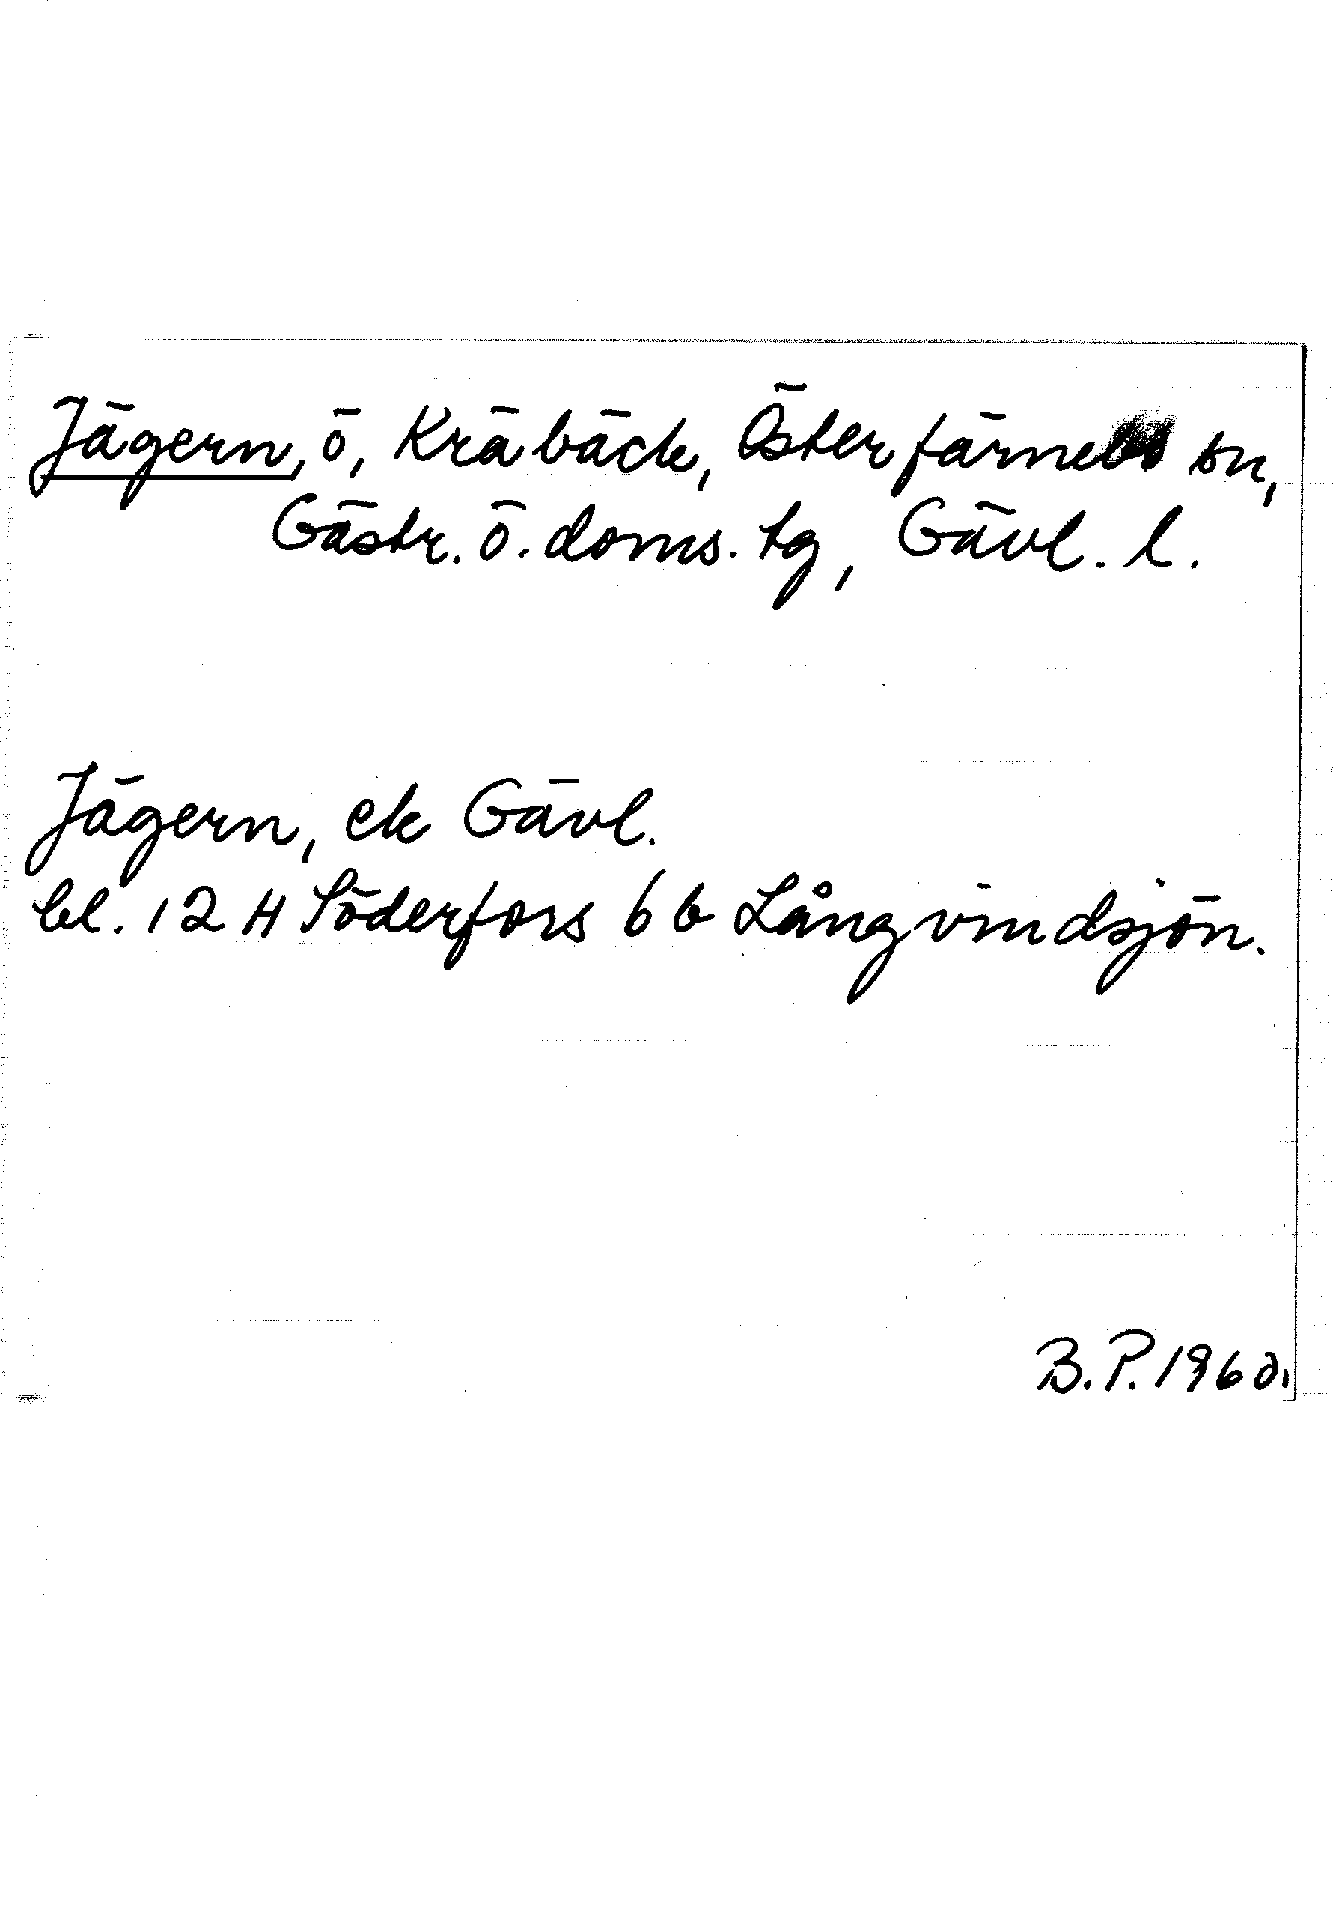 Jägern, ö, Kräbäck, Österfärnebo sn,
Gästr. ö. doms. tg, Gävl. l.
Jägern, ek Gävl.
bl. 12 H Söderfors 6 b Långvindsjön.
B.P. 1960.